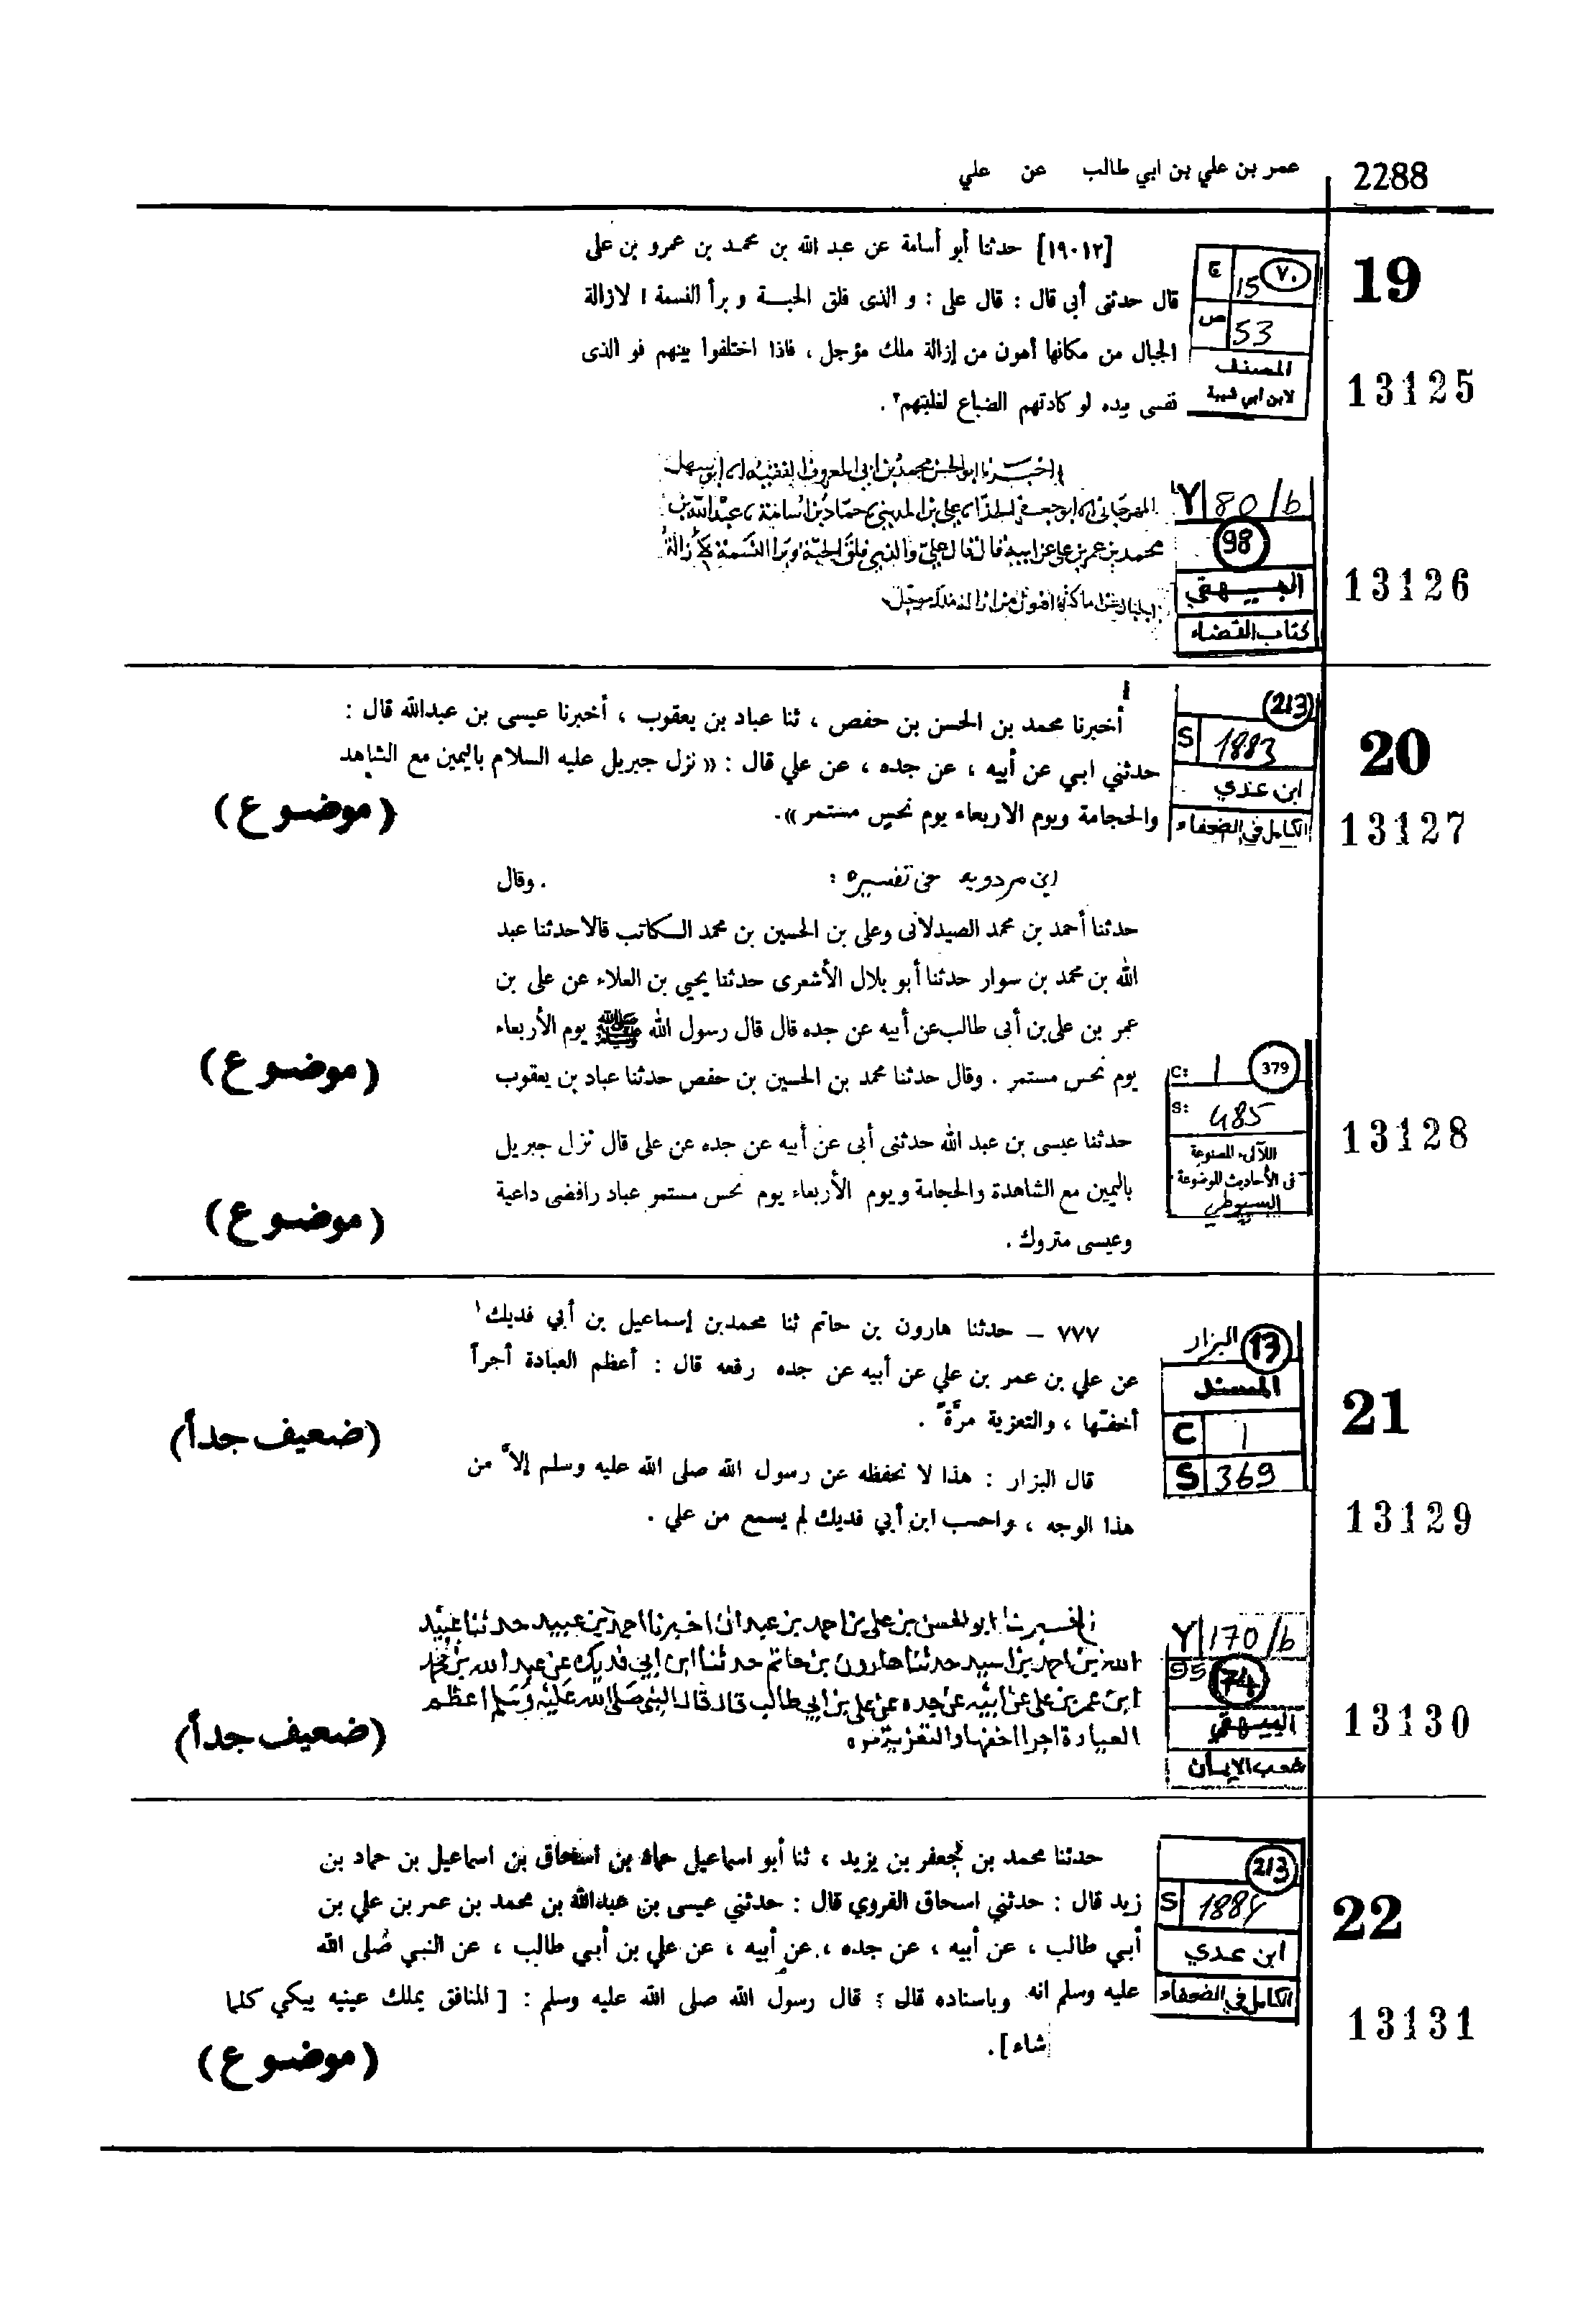 2288
عمر بن علي بن ابي طالب عن علي
19
ج ٧٠ 15
ص 53
المصنف
لابن ابي شيبة
13125
[١٩٠١٢] حدثنا أبو أسامة عن عبد الله بن محمد بن عمرو بن على
قال حدثنى أبى قال : قال على : و الذى فلق الحبة و برأ النسمة ! لازالة
الجبال من مكانها أهون من إزالة ملك مؤجل ، فاذا اختلفوا بينهم فو الذى
نفسى بيده لو كادتهم الضباع لغلبتهم٢ .
Y 80/b
98
البيهقي
كتاب القضاء
13126
محمد بن عمر بن علي عن ابيه قال قال علي والذي فلق الحبة وبرا النسمة لازالة
20
213
S 1883
ابن عدي
الكامل في الضعفاء
13127
أخبرنا محمد بن الحسن بن حفص ، ثنا عباد بن يعقوب ، أخبرنا عيسى بن عبدالله قال :
حدثني ابي عن أبيه ، عن جده ، عن علي قال : « نزل جبريل عليه السلام باليمين مع الشاهد
والحجامة ويوم الاربعاء يوم نحس مستمر ».
(موضوع)
ابن مردويه في تفسيره : . وقال
حدثنا أحمد بن محمد الصيدلانى وعلى بن الحسين بن محمد الكاتب قالا حدثنا عبد
الله بن محمد بن سوار حدثنا أبو بلال الأشعرى حدثنا يحيى بن العلاء عن على بن
عمر بن على بن أبى طالب عن أبيه عن جده قال قال رسول الله ﷺ يوم الأربعاء
يوم نحس مستمر . وقال حدثنا محمد بن الحسين بن حفص حدثنا عباد بن يعقوب
(موضوع)
C: 1 379
S: 485
اللآلىء المصنوعة
فى الأحاديث الموضوعة
السيوطي
13128
حدثنا عيسى بن عبد الله حدثنى أبى عن أبيه عن جده عن على قال نزل جبريل
باليمين مع الشاهدة والحجامة ويوم الأربعاء يوم نحس مستمر عباد رافضى داعية
وعيسى متروك .
(موضوع)
21
البزار 13
المسند
C 1
S 369
13129
٧٧٧ – حدثنا هارون بن حاتم ثنا محمدبن إسماعيل بن أبي فديك١
عن علي بن عمر بن علي عن أبيه عن جده رفعه قال : أعظم العبادة أجراً
أخفّها ، والتعزية مرّة .
(ضعيف جداً)
قال البزار : هذا لا نحفظه عن رسول الله صلى الله عليه وسلم إلا من
هذا الوجه ، واحسب ابن أبي فديك لم يسمع من علي .
Y 170/b
95 74
البيهقي
شعب الإيمان
13130
اخبرنا ابو الحسن بن علي بن احمد بن عبدان اخبرنا احمد بن عبيد حدثنا عبيد
الله بن احمد بن اسيد حدثنا هارون بن حاتم حدثنا ابن ابي فديك عن عبد الله بن محمد
ابن عمر بن علي عن ابيه عن جده عن علي بن ابي طالب قال قال النبي صلى الله عليه وسلم اعظم
العيادة اجرا اخفها والتعزية مرة
(ضعيف جداً)
22
213
S 1884
ابن عدي
الكامل في الضعفاء
13131
حدثنا محمد بن جعفر بن يزيد ، ثنا أبو اسماعيل حماد بن اسحاق بن اسماعيل بن حماد بن
زيد قال : حدثني اسحاق الفروي قال : حدثني عيسى بن عبدالله بن محمد بن عمر بن علي بن
أبي طالب ، عن أبيه ، عن جده ، عن أبيه ، عن علي بن أبي طالب ، عن النبي صلى الله
عليه وسلم انه وباسناده قال : قال رسول الله صلى الله عليه وسلم : [ المنافق يملك عينيه يبكي كلما
شاء ].
(موضوع)